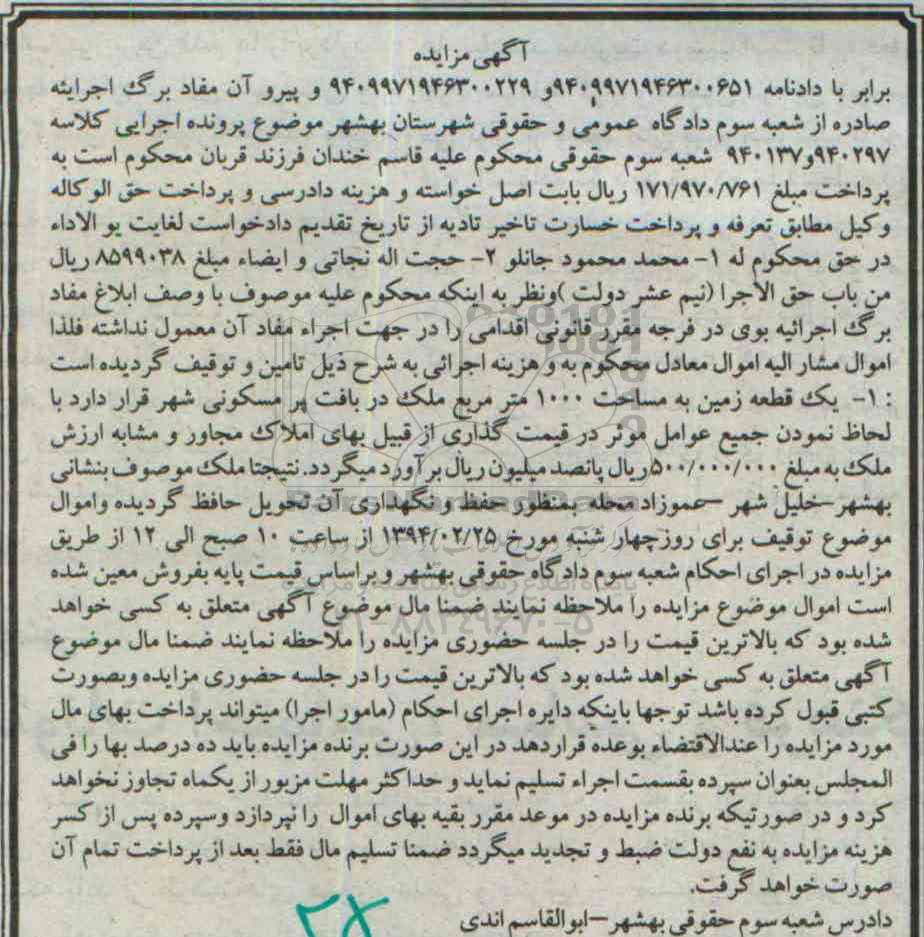 آگهی مزایده
برابر با دادنامه ۹۴۰۹۹۷۱۹۴۶۳۰۰۶۵۱و ۹۴۰۹۹۷۱۹۴۶۳۰۰۲۲۹ و پیرو آن مفاد برگ اجرایئه
صادره از شعبه سوم دادگاه عمومی و حقوقی شهرستان بهشهر موضوع پرونده اجرایی کلاسه
۹۴۰۲۹۷و۹۴۰۱۳۷ شعبه سوم حقوقی محکوم علیه قاسم خندان فرزند قربان محکوم است به
پرداخت مبلغ ۱۷۱/۹۷۰/۷۶۱ ریال بابت اصل خواسته و هزینه دادرسی و پرداخت حق الوکاله
وکیل مطابق تعرفه و پرداخت خسارت تاخیر تادیه از تاریخ تقدیم دادخواست لغایت یو الاداء
در حق محکوم له ۱- محمد محمود جانلو ۲- حجت اله نجاتی و ایضاء مبلغ ۸۵۹۹۰۳۸ ریال
من باب حق الاجرا (نیم عشر دولت )ونظر به اینکه محکوم علیه موصوف با وصف ابلاغ مفاد
برگ اجرائیه بوی در فرجه مقرر قانونی اقدامی را در جهت اجراء مفاد آن معمول نداشته فلذا
اموال مشار الیه اموال معادل محکوم به و هزینه اجرائی به شرح ذیل تامین و توقیف گردیده است
: ۱- یک قطعه زمین به مساحت ۱۰۰۰ متر مربع ملک در بافت پر مسکونی شهر قرار دارد با
لحاظ نمودن جمیع عوامل موثر در قیمت گذاری از قبیل بهای املاک مجاور و مشابه ارزش
ملک به مبلغ ۵۰۰/۰۰۰/۰۰۰ریال پانصد میلیون ریال بر آورد میگردد. نتیجتا ملک موصوف بنشانی
بهشهر-خلیل شهر –عموزاد محله بمنظور حفظ و نگهداری آن تحویل حافظ گردیده واموال
موضوع توقیف برای روزچهار شنبه مورخ ۱۳۹۴/۰۲/۲۵ از ساعت ۱۰ صبح الی ۱۲ از طریق
مزایده در اجرای احکام شعبه سوم دادگاه حقوقی بهشهر و براساس قیمت پایه بفروش معین شده
است اموال موضوع مزایده را ملاحظه نمایند ضمنا مال موضوع آگهی متعلق به کسی خواهد
شده بود که بالاترین قیمت را در جلسه حضوری مزایده را ملاحظه نمایند ضمنا مال موضوع
آگهی متعلق به کسی خواهد شده بود که بالاترین قیمت را در جلسه حضوری مزایده وبصورت
کتبی قبول کرده باشد توجها باینکه دایره اجرای احکام (مامور اجرا) میتواند پرداخت بهای مال
مورد مزایده را عندالاقتضاء بوعده قراردهد در این صورت برنده مزایده باید ده درصد بها را فی
المجلس بعنوان سپرده بقسمت اجراء تسلیم نماید و حداکثر مهلت مزبور از یکماه تجاوز نخواهد
کرد و در صورتیکه برنده مزایده در موعد مقرر بقیه بهای اموال را نپردازد وسپرده پس از کسر
هزینه مزایده به نفع دولت ضبط و تجدید میگردد ضمنا تسلیم مال فقط بعد از پرداخت تمام آن
صورت خواهد گرفت.
دادرس شعبه سوم حقوقی بهشهر –ابوالقاسم اندی